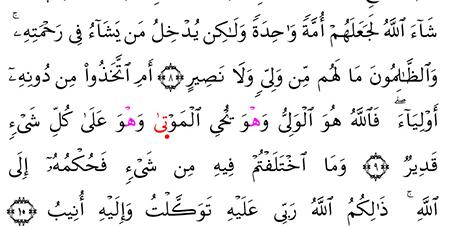 شَآءَ ٱللَّهُ لَجَعَلَهُمْ أُمَّةً وَٰحِدَةً وَلَٰكِن يُدْخِلُ مَن يَشَآءُ فِى رَحْمَتِهِۦ ۚ
وَٱلظَّٰلِمُونَ مَا لَهُم مِّن وَلِىٍّ وَلَا نَصِيرٍ ٨ أَمِ ٱتَّخَذُوا۟ مِن دُونِهِۦٓ
أَوْلِيَآءَ ۖ فَٱللَّهُ هُوَ ٱلْوَلِىُّ وَهْوَ يُحْىِ ٱلْمَوْتَىٰ وَهْوَ عَلَىٰ كُلِّ شَىْءٍ
قَدِيرٌ ٩ وَمَا ٱخْتَلَفْتُمْ فِيهِ مِن شَىْءٍ فَحُكْمُهُۥٓ إِلَى
ٱللَّهِ ۚ ذَٰلِكُمُ ٱللَّهُ رَبِّى عَلَيْهِ تَوَكَّلْتُ وَإِلَيْهِ أُنِيبُ ١٠